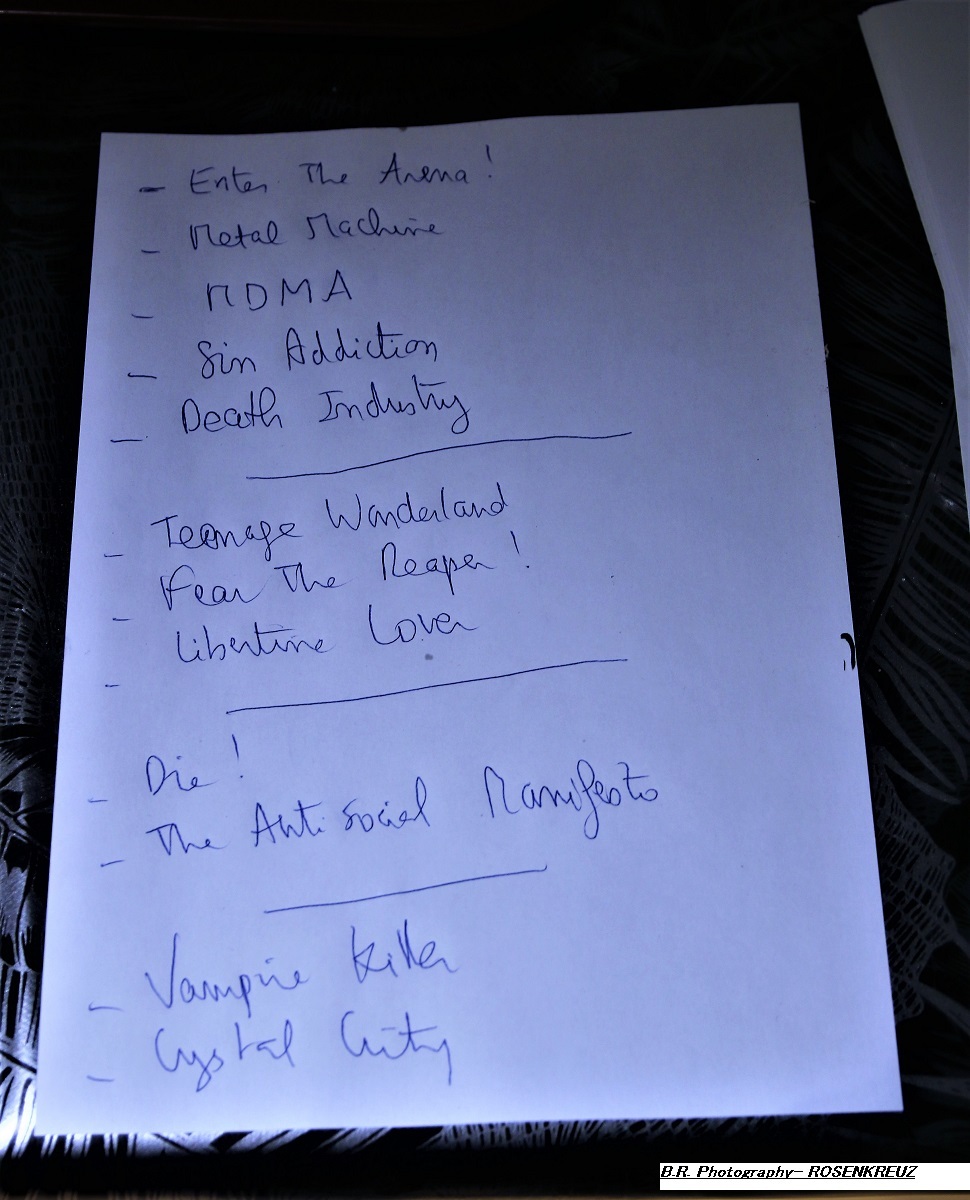 - Enter The Arena!
- Metal Machine
- MDMA
- Sin Addiction
- Death Industry
- Teenage Wonderland
- Fear The Reaper!
- Libertine Lover
- Die!
- The Antisocial Manifesto
- Vampire Killer
- Crystal City
B.R. Photography- ROSENKREUZ